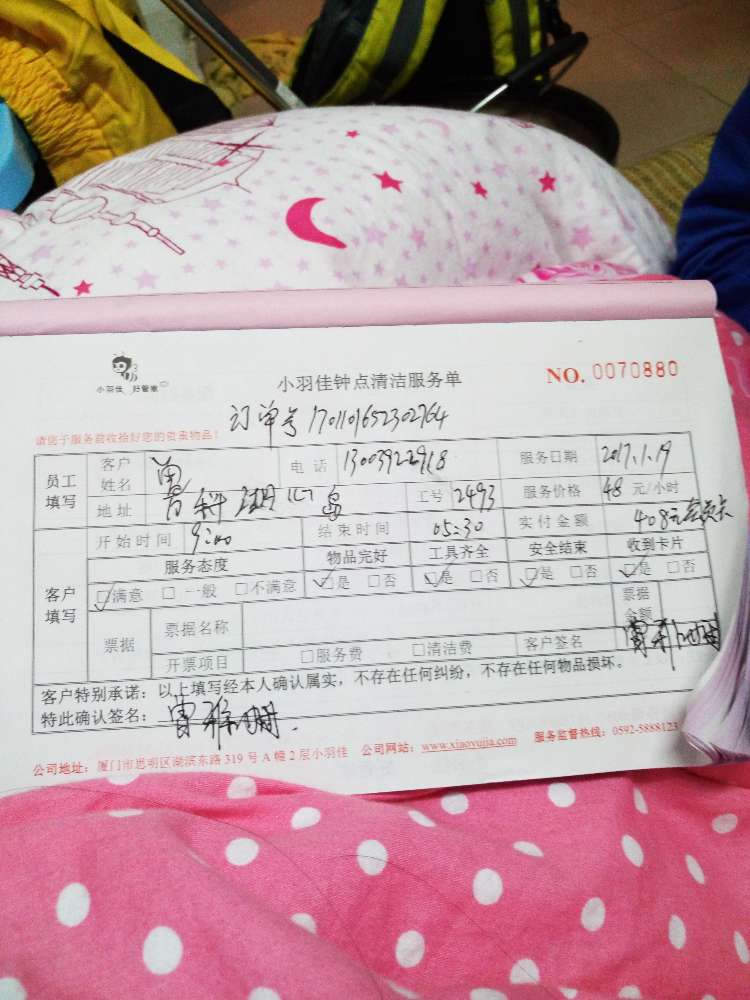 小羽佳 好管家
小羽佳钟点清洁服务单
NO. 0070880
订单号1701101652302764
请您于服务前收拾好您的贵重物品!
员工填写 客户姓名 曾 电话 13003922918 服务日期 2017.1.19
地址 湖心岛 工号 2493 服务价格 48 元/小时
客户填写 开始时间 9:00 结束时间 05:30 实付金额 408元
服务态度 物品完好 工具齐全 安全结束 收到卡片
☑满意 □一般 □不满意 ☑是 □否 ☑是 □否 ☑是 □否 ☑是 □否
票据 票据名称 票据金额
开票项目 □服务费 □清洁费 客户签名
客户特别承诺:以上填写经本人确认属实,不存在任何纠纷,不存在任何物品损坏。
特此确认签名:
公司地址:厦门市思明区湖滨东路 319 号 A 幢 2 层小羽佳 公司网站:www.xiaoyujia.com 服务监督热线:0592-5888123